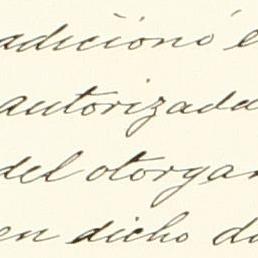 adicionó e
autorizada
del otorgan
en dicho do